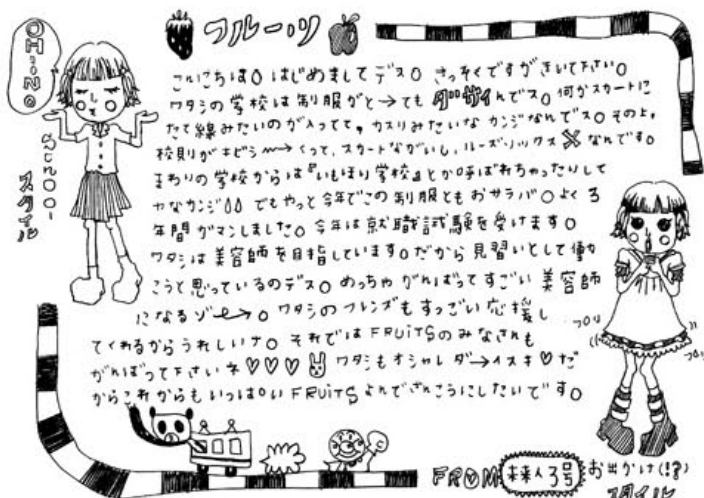 フルーツ
OHiNO
Schoolスタイル
こんにちは○ はじめましてデス○ さっそくですがきいて下さい○
ワタシの学校は制服がと→ても ダサイんでス○ 何かスカートに
たて線みたいのが入ってて、カスリみたいな カンジなんでス○ その上、
校則がキビシ〜→くって、スカートながいし、ルーズソックス×なんです。
まわりの学校からは『いもほり学校』とか呼ばれちゃったりして
ヤなカンジ○○ でもやっと今年でこの制服ともおサラバ○ よくも3
年間ガマンしました○ 今年は就職試験を受けます○
ワタシは美容師を目指しています○だから見習いとして働
こうと思っているのデス○ めっちゃ がんばってすごい 美容師
になるゾ〜→○ ワタシのフレンズもすっごい応援し
てくれるからうれしいナ○ それではFRUiTSのみなさんも
がんばって下さいネ♡♡♡ ワタシもオシャレダ→イスキ♡だ
からこれからもいっぱいFRUiTSよんでさんこうにしたいです○
フリフリ
フリフリ
FROM 未来人3号
お出かけ(!?)スタイル